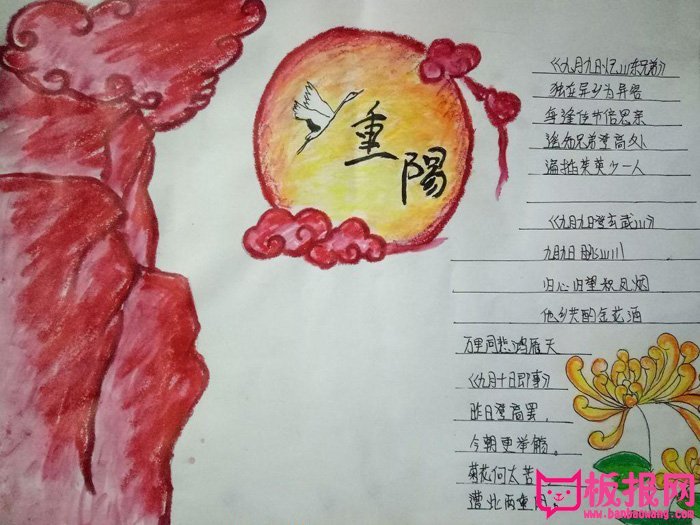 重
陽
《九月九日忆山东兄弟》
独在异乡为异客
每逢佳节倍思亲
遥知兄弟登高处
遍插茱萸少一人
《九月九登玄武山》
九月九日眺山川
归心归望积风烟
他乡共酌金花酒
万里同悲鸿雁天
《九月十日即事》
昨日登高罢,
今朝更举觞。
菊花何太苦
遭此两重阳。
板报网
www.banbaowang.com